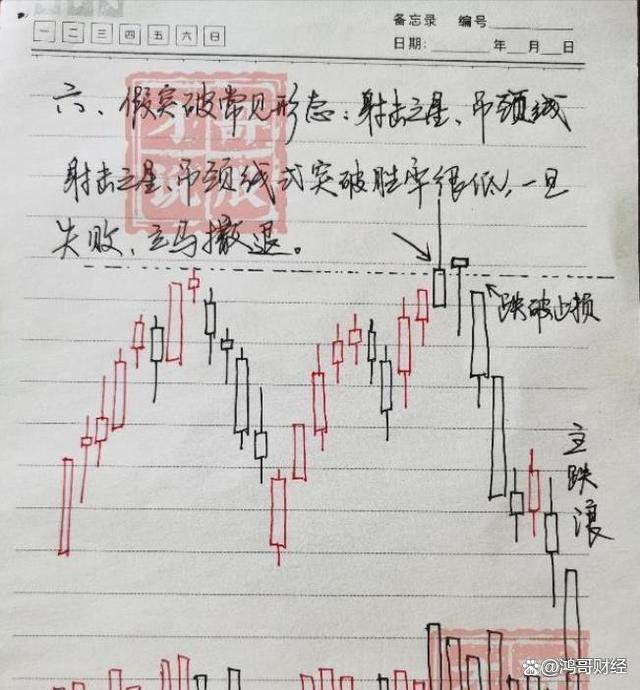 一 二 三 四 五 六 日
备忘录 编号
日期: 年 月 日
六、假突破常见形态:射击之星、吊颈线
射击之星、吊颈线式突破胜率很低,一旦
失败,立马撤退。
跌破止损
主跌浪
鸿哥财经